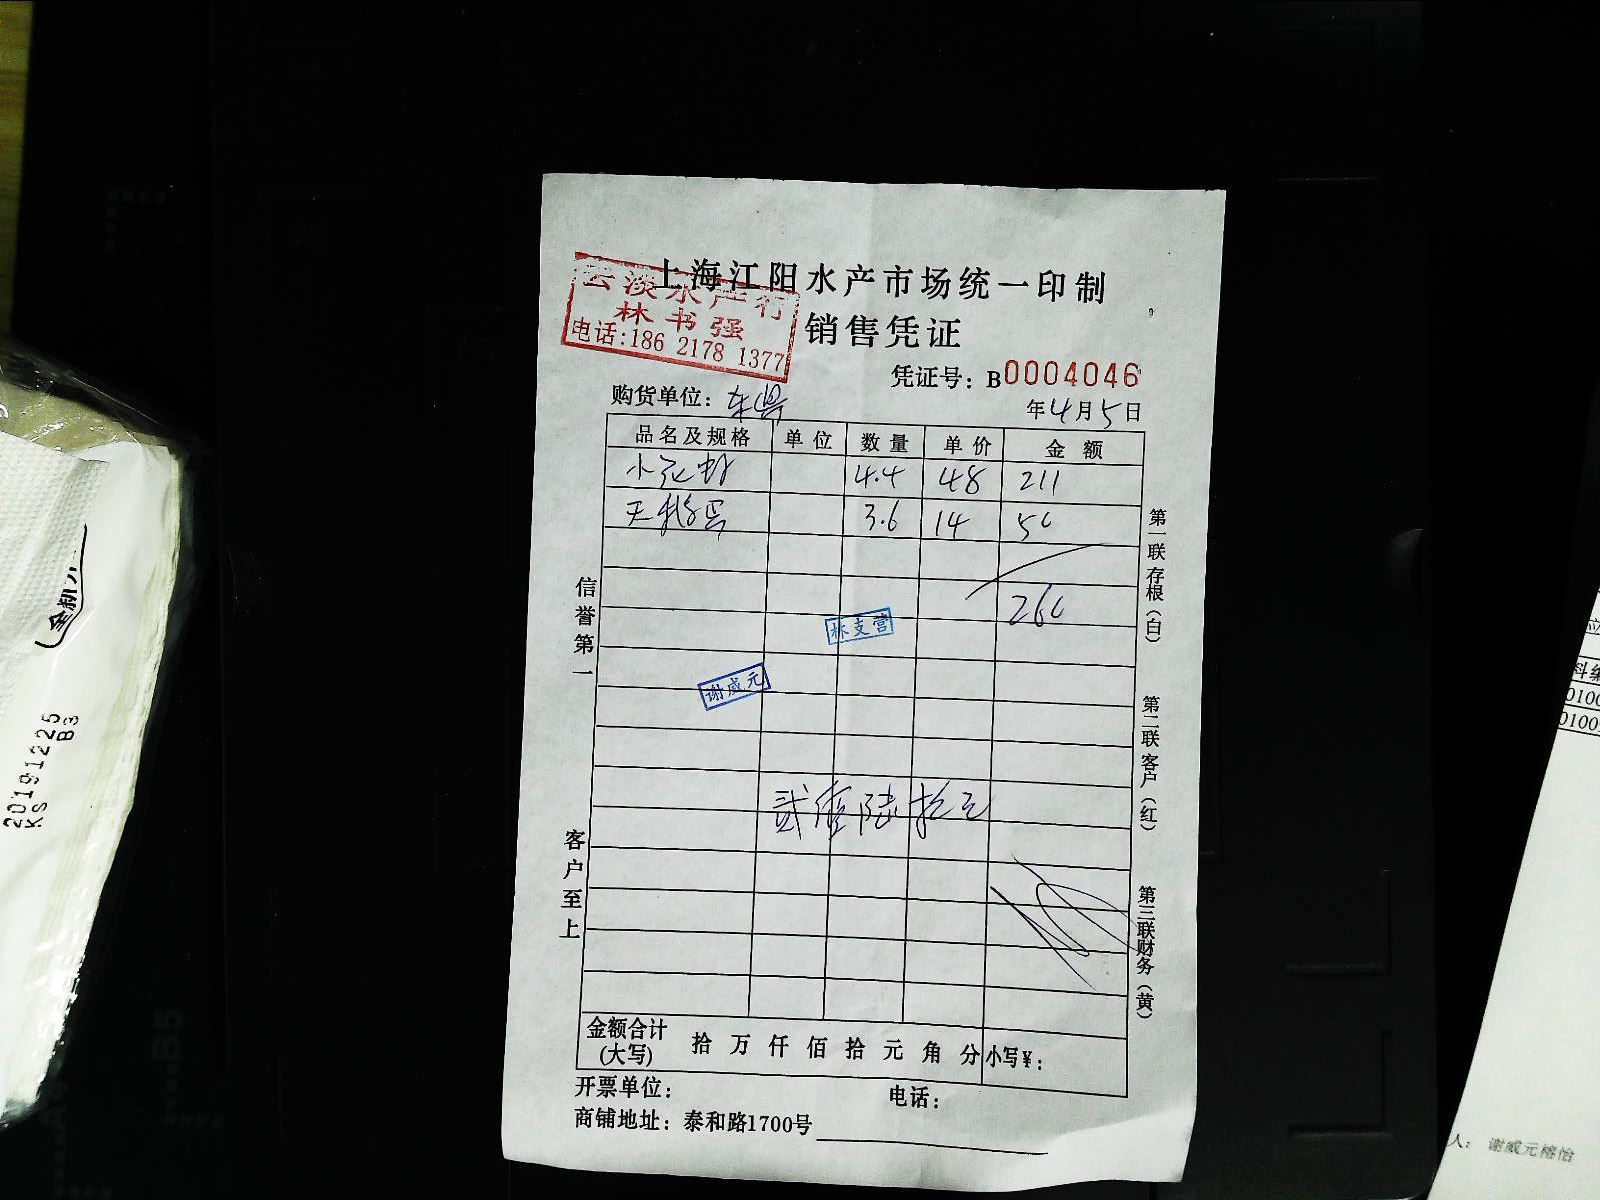 上海江阳水产市场统一印制
云淡水产行
林书强
电话:186 2178 1377
销售凭证
凭证号：B0004046
购货单位：
年4月5日
品名及规格 单位 数量 单价 金额
4.4 48 211
天鹅蛋 3.6 14 50
260
林支营
谢威元
贰佰陆拾元
信誉第一
客户至上
第一联存根（白）
第二联客户（红）
第三联财务（黄）
金额合计
(大写) 拾万仟佰拾元角分 小写¥：
开票单位： 电话：
商铺地址：泰和路1700号
20191225
KS B3
B5
人： 谢威元榕怡